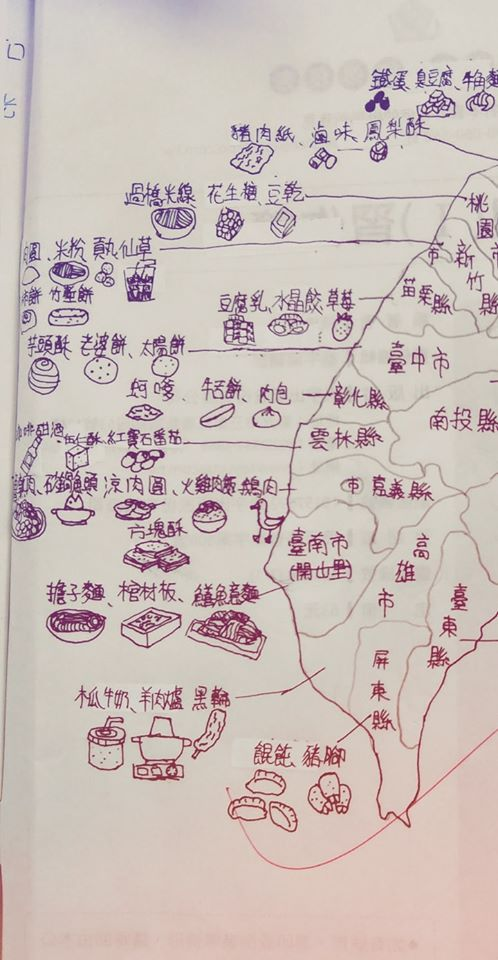 鐵蛋、臭豆腐、牛角麵
豬肉紙、滷味、鳳梨酥
過橋米線 花生糖、豆乾
桃園
圓、米粉 貢丸 仙草
市 新竹縣 市
餅 竹塹餅
豆腐乳、水晶餃、草莓
苗栗縣
芋頭酥 老婆餅、太陽餅
臺中市
蚵嗲 牛舌餅、肉包
彰化縣
南投縣
紅寶石番茄
雲林縣
砂鍋魚頭 涼肉圓、火雞肉飯 鵝肉
市 嘉義縣
方塊酥
臺南市
高雄市
擔子麵、棺材板、鱔魚意麵
臺東縣
屏東縣
木瓜牛奶、羊肉爐 黑輪
餛飩、豬腳